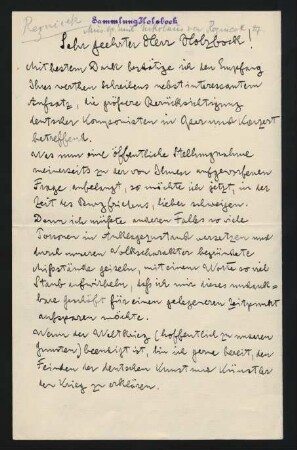 Sammlung Holzbock
Reznicek
Sehr geehrter Herr Holzbock!
Mit bestem Dank bestätige ich den Empfang
Ihres werthen Schreibens nebst interessantem
Aufsatz, die größere Berücksichtigung
deutscher Komponisten in Oper und Konzert
betreffend.
Was nun eine öffentliche Stellungnahme
meinerseits zu der von Ihnen aufgeworfenen
Frage anbelangt, so möchte ich jetzt, in der
Zeit des Burgfriedens, lieber schweigen.
Denn ich müßte anderen Falls so viele
Personen in Anklagezustand versetzen und
durch unseren Volkscharakter begründete
Mißstände geißeln, mit einem Worte so viel
Staub aufwirbeln, daß ich mir dieses undank-
bare Geschäft für einen gelegeneren Zeitpunkt
aufsparen möchte.
Wenn der Weltkrieg (hoffentlich zu unseren
Gunsten) beendigt ist, bin ich gerne bereit, den
Feinden der deutschen Kunst und Künstler
den Krieg zu erklären.